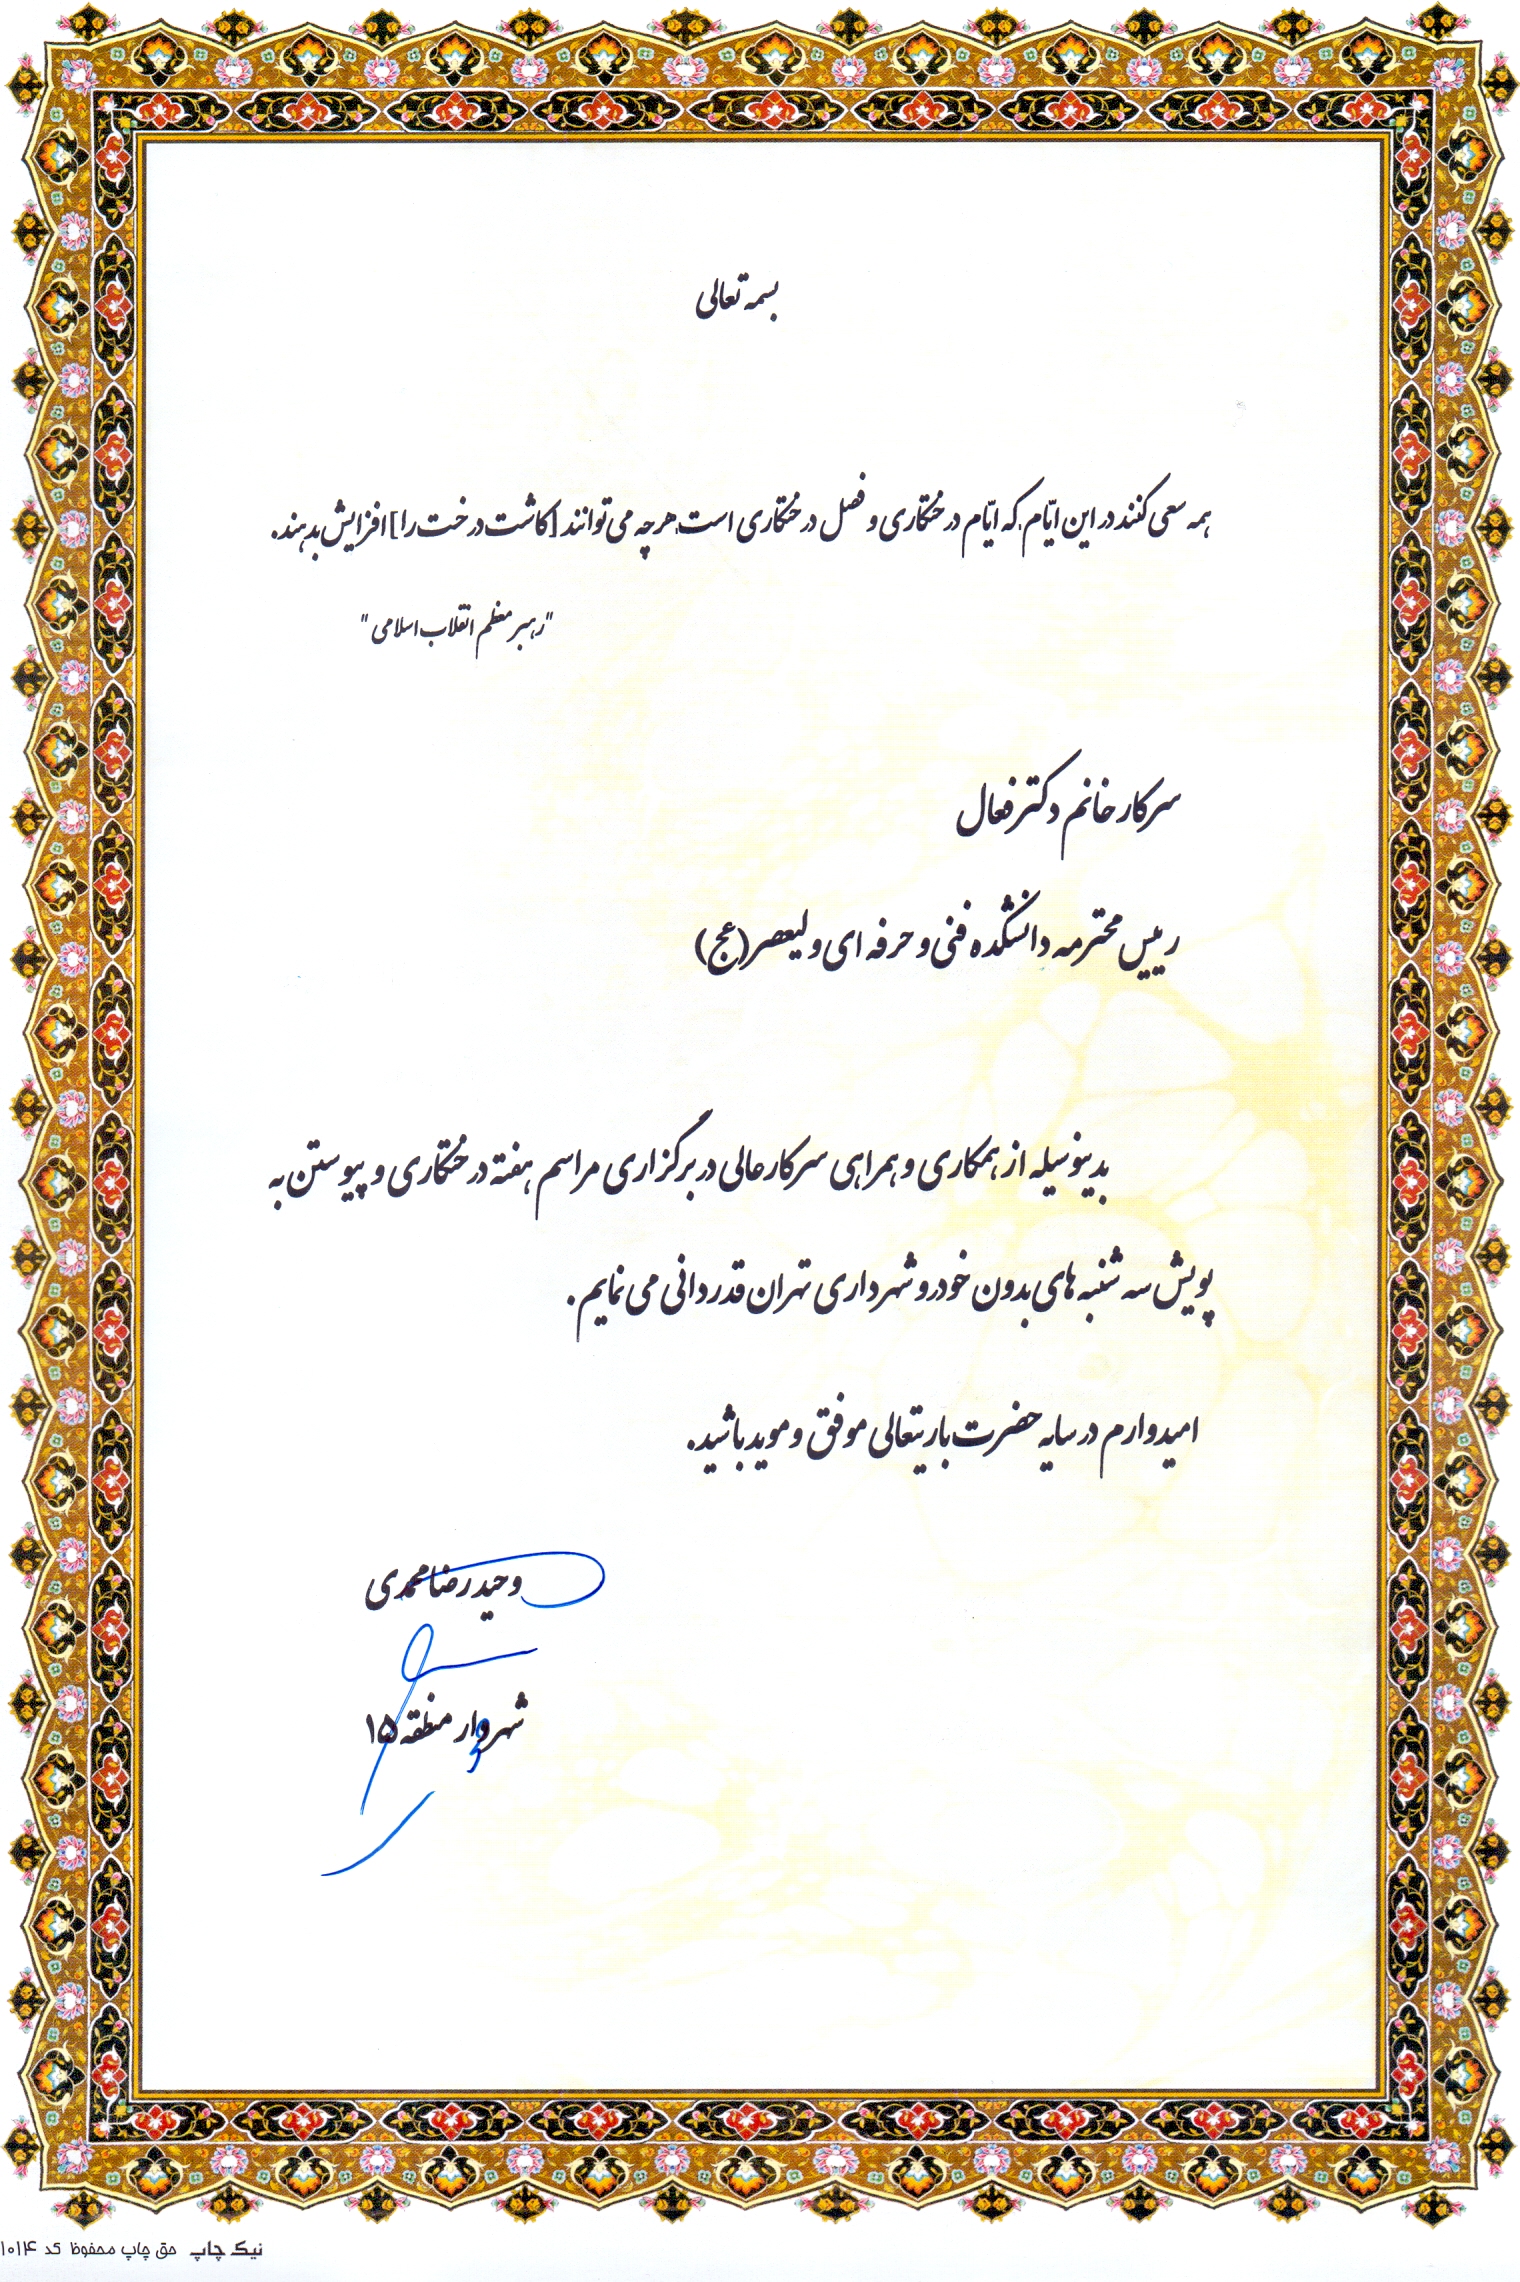 بسمه تعالی
همه سعی کنند در این ایّام که ایّام درختکاری و فصل درختکاری است، هر چه می توانند [کاشت درخت را] افزایش بدهند.
"رهبر معظم انقلاب اسلامی"
سرکار خانم دکتر فعال
رییس محترمه دانشکده فنی و حرفه ای ولیعصر (عج)
بدینوسیله از همکاری و همراهی سرکارعالی در برگزاری مراسم هفته درختکاری و پیوستن به
پویش سه شنبه های بدون خودرو شهرداری تهران قدردانی می نمایم.
امیدوارم در سایه حضرت باریتعالی موفق و موید باشید.
وحید رضا محمدی
شهردار منطقه ۱۵
نیک چاپ حق چاپ محفوظ کد ۱۰۱۴